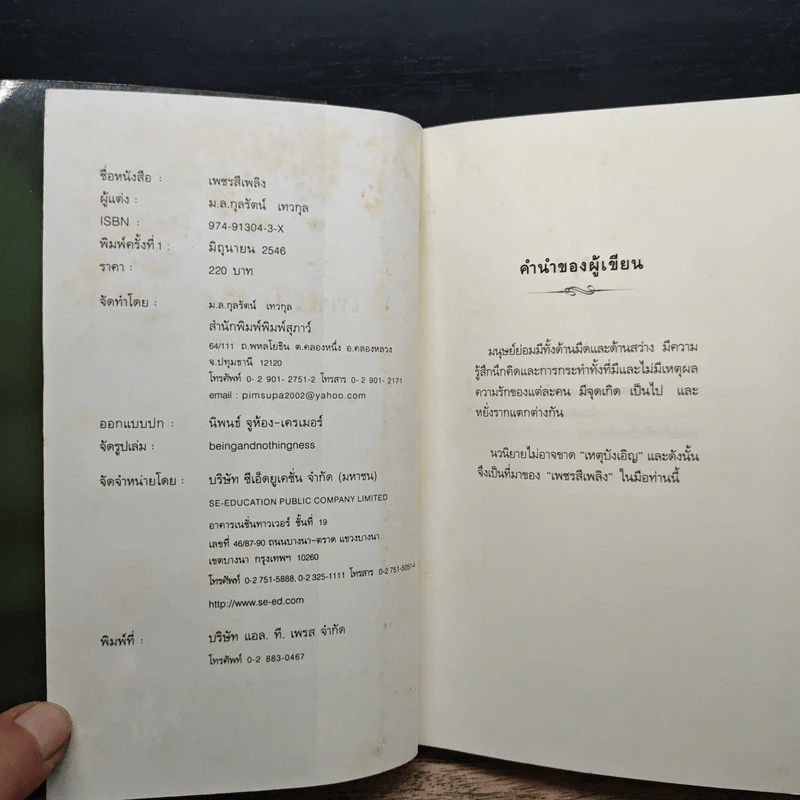 ชื่อหนังสือ : เพชรสีเพลิง
ผู้แต่ง : ม.ล.กุลรัตน์ เทวกุล
ISBN : 974-91304-3-X
พิมพ์ครั้งที่ 1 : มิถุนายน 2546
ราคา : 220 บาท
จัดทำโดย : ม.ล.กุลรัตน์ เทวกุล
สำนักพิมพ์พิมพ์สุภาว์
64/111 ถ.พหลโยธิน ต.คลองหนึ่ง อ.คลองหลวง
จ.ปทุมธานี 12120
โทรศัพท์ 0-2 901- 2751-2 โทรสาร 0-2 901- 2171
email : pimsupa2002@yahoo.com
ออกแบบปก : นิพนธ์ จูห้อง-เครเมอร์
จัดรูปเล่ม : beingandnothingness
จัดจำหน่ายโดย : บริษัท ซีเอ็ดยูเคชั่น จำกัด (มหาชน)
SE-EDUCATION PUBLIC COMPANY LIMITED
อาคารเนชั่นทาวเวอร์ ชั้นที่ 19
เลขที่ 46/87-90 ถนนบางนา-ตราด แขวงบางนา
เขตบางนา กรุงเทพฯ 10260
โทรศัพท์ 0-2 751-5888, 0-2 325-1111 โทรสาร 0-2 751-5051-4
http://www.se-ed.com
พิมพ์ที่ : บริษัท แอล. ที. เพรส จำกัด
โทรศัพท์ 0-2 883-0467
คำนำของผู้เขียน
มนุษย์ย่อมมีทั้งด้านมืดและด้านสว่าง มีความ
รู้สึกนึกคิดและการกระทำทั้งที่มีและไม่มีเหตุผล
ความรักของแต่ละคน มีจุดเกิด เป็นไป และ
หยั่งรากแตกต่างกัน
นวนิยายไม่อาจขาด "เหตุบังเอิญ" และดังนั้น
จึงเป็นที่มาของ "เพชรสีเพลิง" ในมือท่านนี้